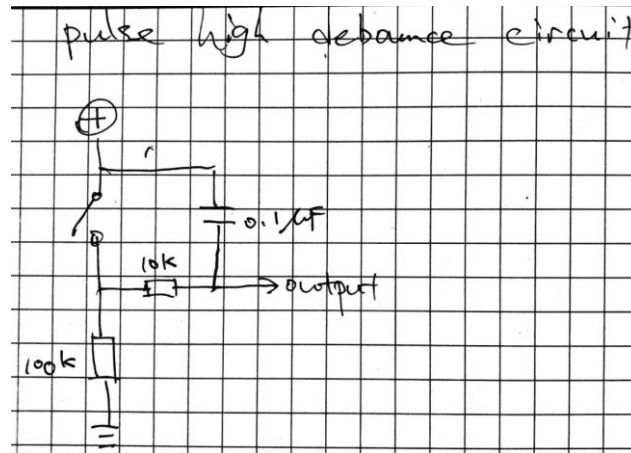 pulse high debounce circuit
+
0.1µF
10k
output
100k